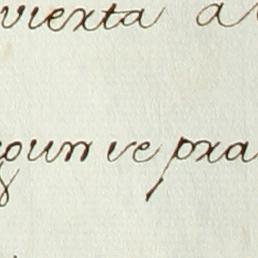 viexta a
goun ve pra